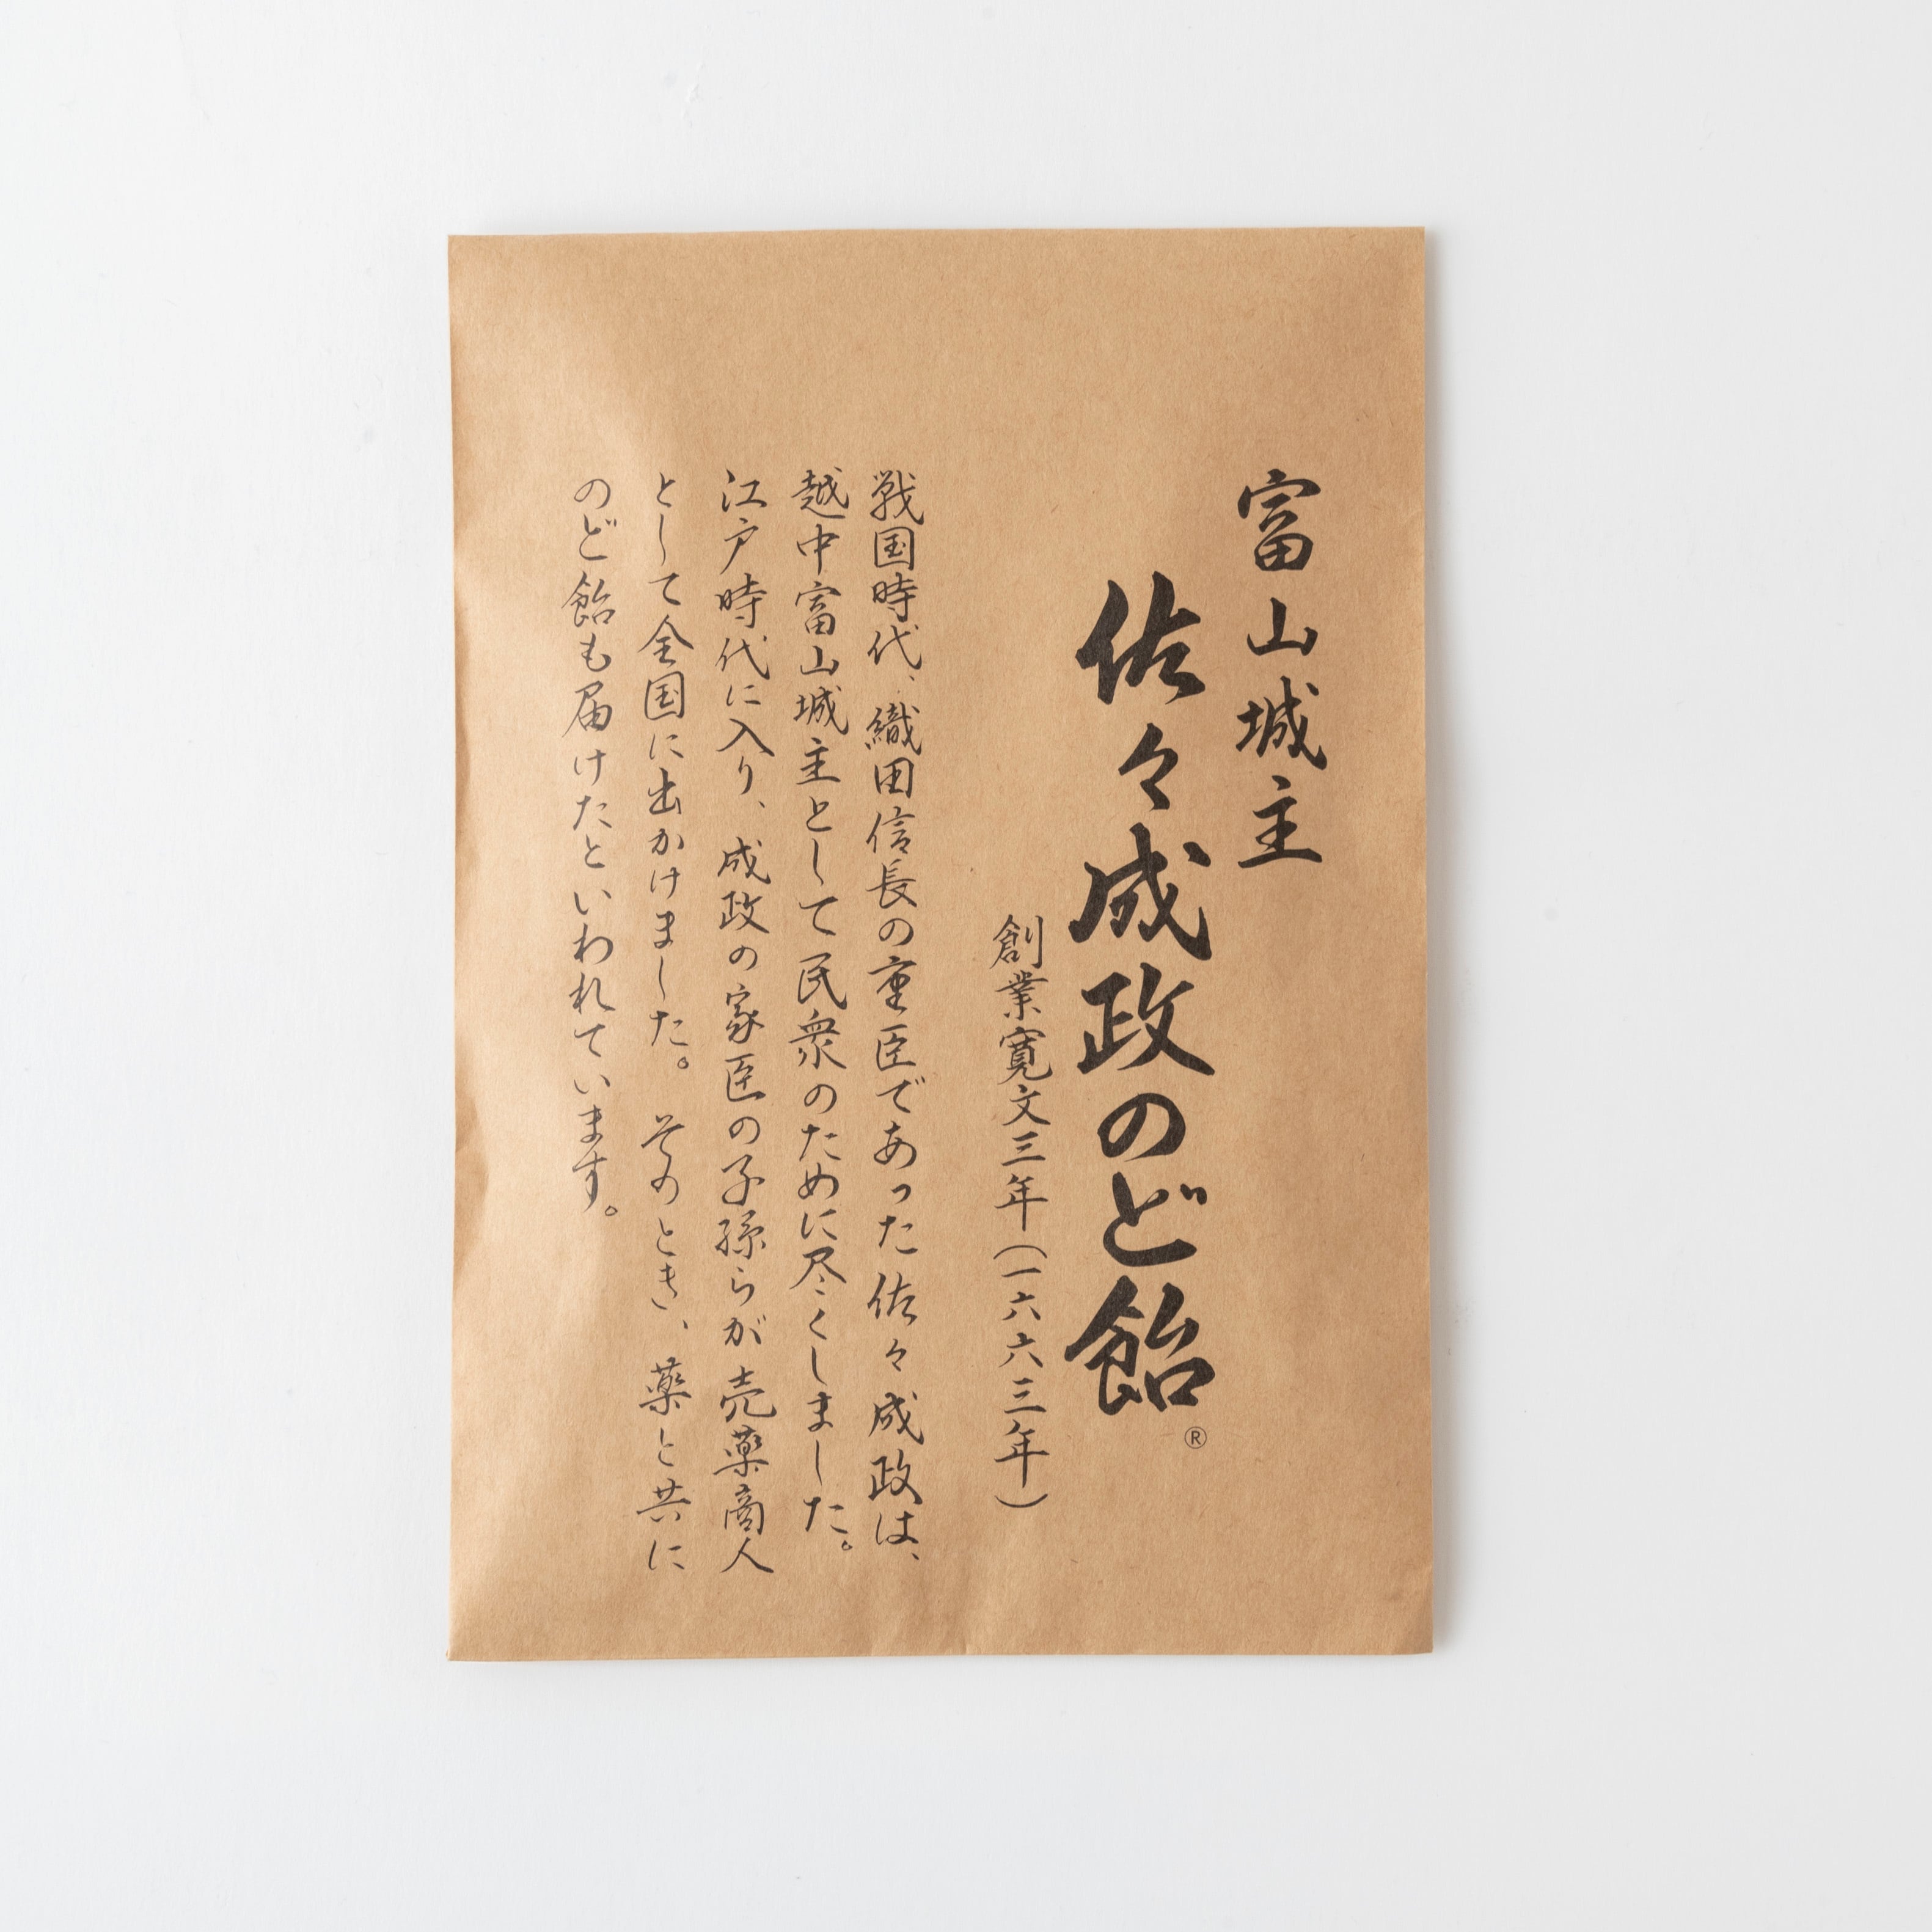 富山城主
佐々成政のど飴
®
創業寛文三年(一六六三年)
戦国時代、織田信長の重臣であった佐々成政は、
越中富山城主として民衆のために尽くしました。
江戸時代に入り、成政の家臣の子孫らが売薬商人
として全国に出かけました。そのとき、薬と共に
のど飴も届けたといわれています。